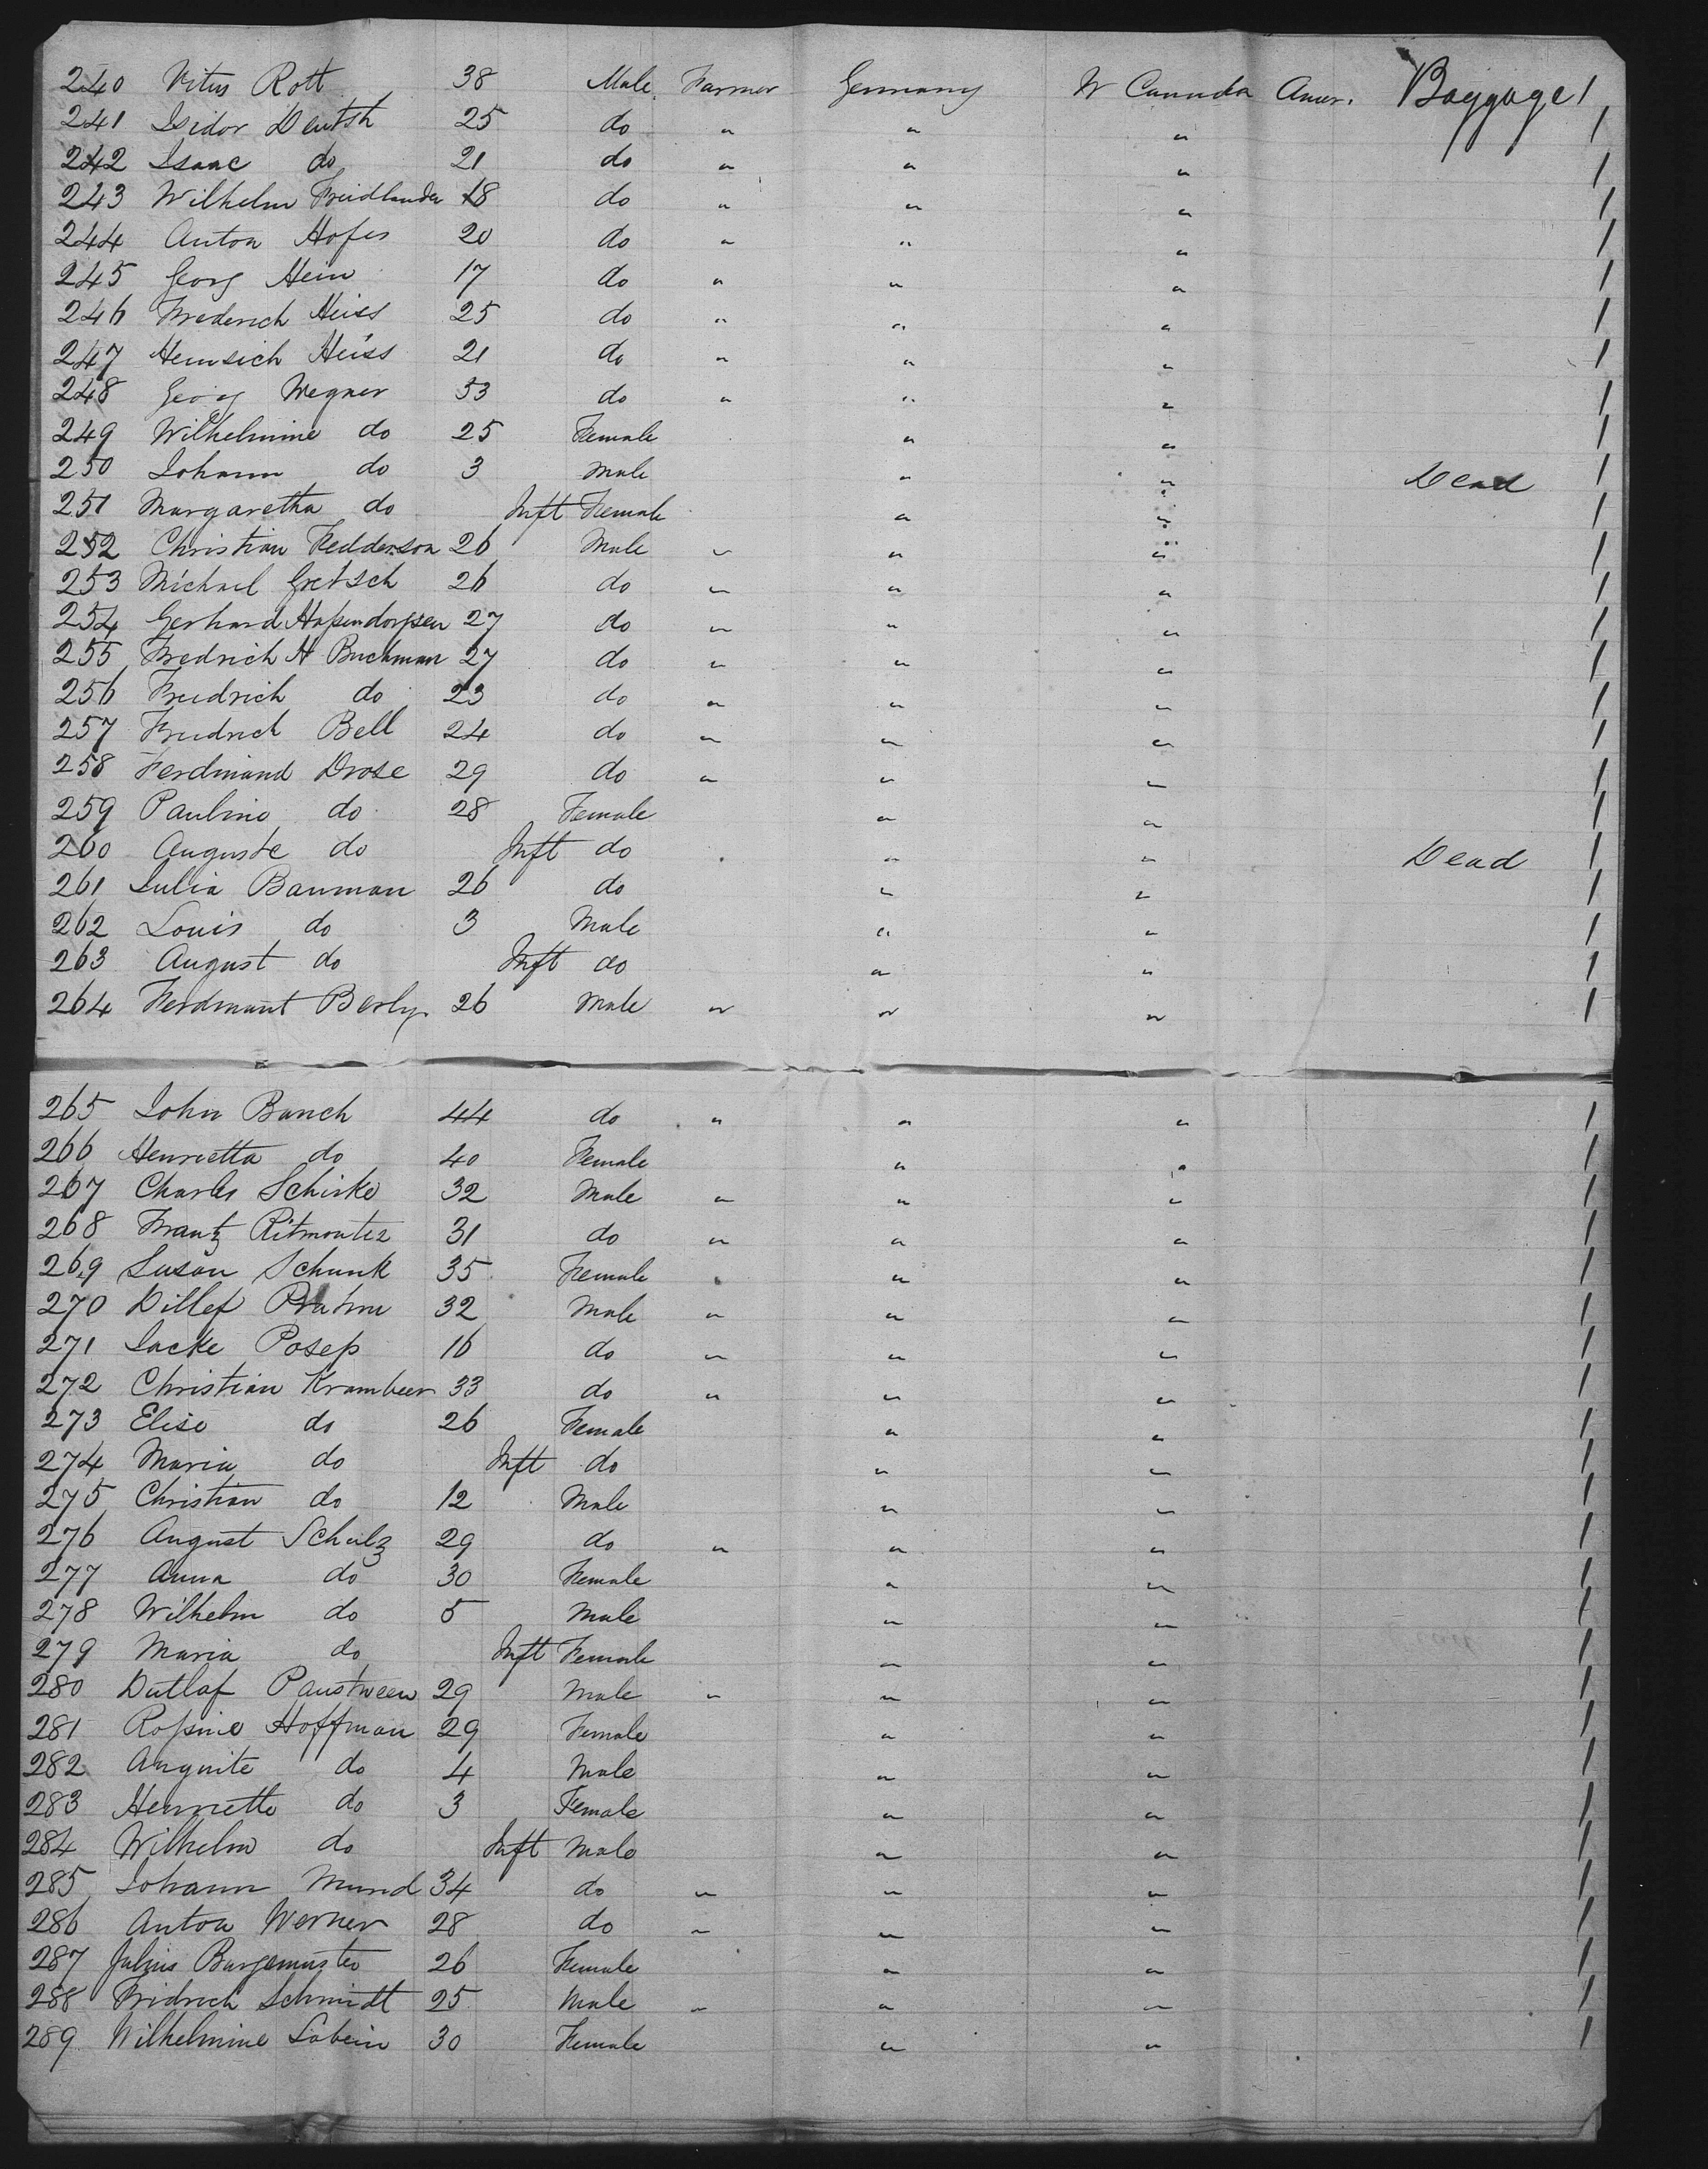 240 Vitus Rott 38 Male Farmer Germany W Canada Amer. Baggage 1
241 Isidor Deutsh 25 do " " " 1
242 Isaac do 21 do " " " 1
243 Wilhelm Freidlander 18 do " " " 1
244 Anton Hofes 20 do " " " 1
245 Georg Hein 17 do " " " 1
246 Frederich Heiss 25 do " " " 1
247 Heinsich Heiss 21 do " " " 1
248 Georg Wegner 53 do " " " 1
249 Wilhelmine do 25 Female " " 1
250 Johann do 3 Male " " Dead 1
251 Margaretha do Inft Female " " 1
252 Christian Fedderson 26 Male " " " 1
253 Michael Gretsch 26 do " " " 1
254 Gerhard 27 do " " " 1
255 Fredrich H Buckman 27 do " " " 1
256 Freidrich do 23 do " " " 1
257 Freidrich Bell 24 do " " " 1
258 Ferdinand Drose 29 do " " " 1
259 Pauline do 28 Female " " 1
260 Auguste do Inft do " " Dead 1
261 Julia Bauman 26 do " " 1
262 Louis do 3 Male " " 1
263 August do Inft do " " 1
264 Ferdinant Berly 26 Male " " " 1
265 John Banch 44 do " " " 1
266 Henrietta do 40 Female " " 1
267 Charles Schirke 32 Male " " " 1
268 Frantz 31 do " " " 1
269 Susan Schunk 35 Female " " 1
270 Dillef 32 Male " " " 1
271 Jacke Posep 16 do " " " 1
272 Christian Krambeer 33 do " " " 1
273 Elise do 26 Female " " 1
274 Maria do Inft do " " 1
275 Christian do 12 Male " " 1
276 August Schulz 29 do " " " 1
277 Anna do 30 Female " " 1
278 Wilhelm do 5 Male " " 1
279 Maria do Inft Female " " 1
280 Dutlaf 29 Male " " " 1
281 Rosine Hoffman 29 Female " " 1
282 Auguite do 4 Male " " 1
283 Henriette do 3 Female " " 1
284 Wilhelm do Inft Male " " 1
285 Johann Mund 34 do " " " 1
286 Anton Werner 28 do " " " 1
287 Julius 26 Female " " 1
288 Fridrich Schmidt 25 Male " " " 1
289 Wilhelmine Sabein 30 Female " " 1